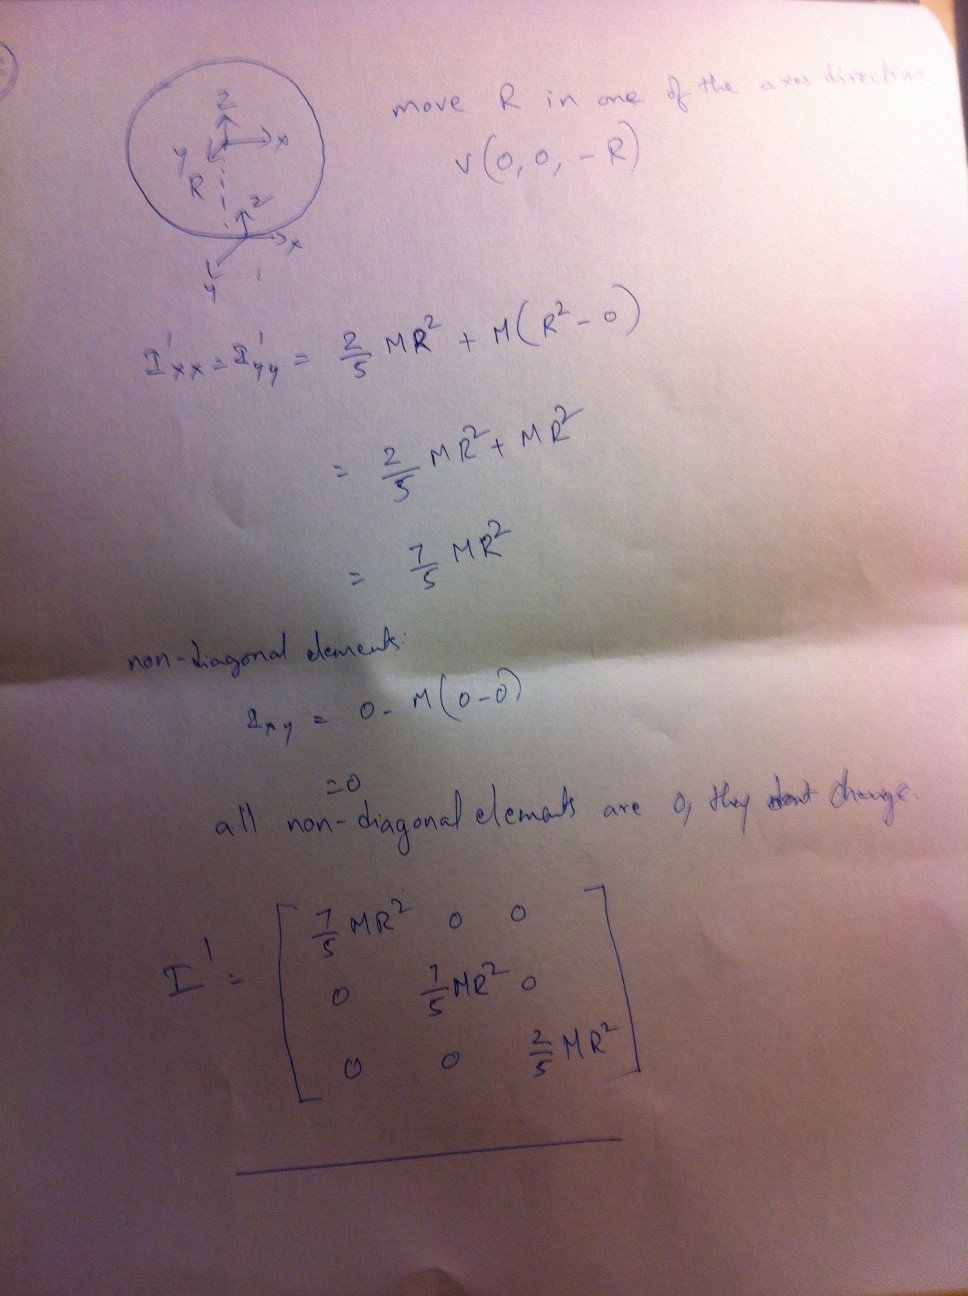 move R in one of the axes direction
V(0, 0, -R)
Z
X
Y
R
Z
X
Y
I'xx = I'yy = 2/5 MR² + M(R² - 0)
= 2/5 MR² + MR²
= 7/5 MR²
non-diagonal elements:
Ixy = 0 - M(0-0)
=0
all non-diagonal elements are 0, they dont change.
I' = [ 7/5 MR² 0 0
0 7/5 MR² 0
0 0 2/5 MR² ]